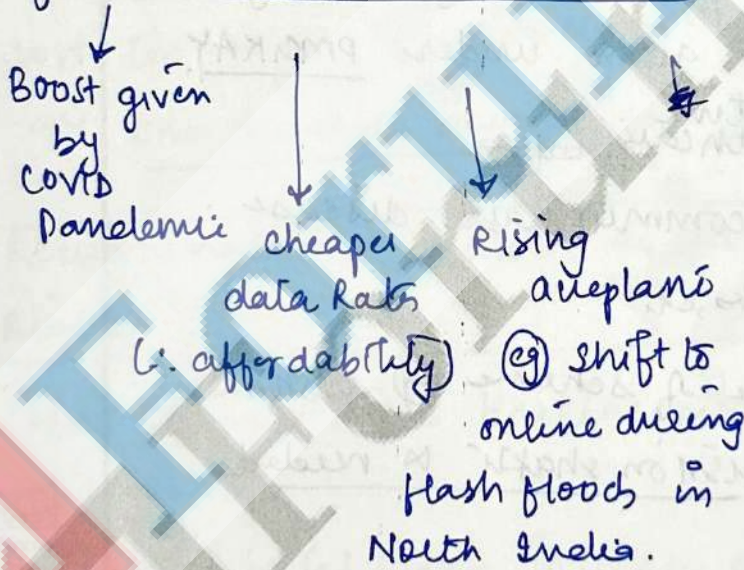 Boost given
by
COVID
Pandemic
cheaper
data Rates
(∴ affordability)
Rising
acceptance
eg shift to
online during
flash floods in
North India.
Forum